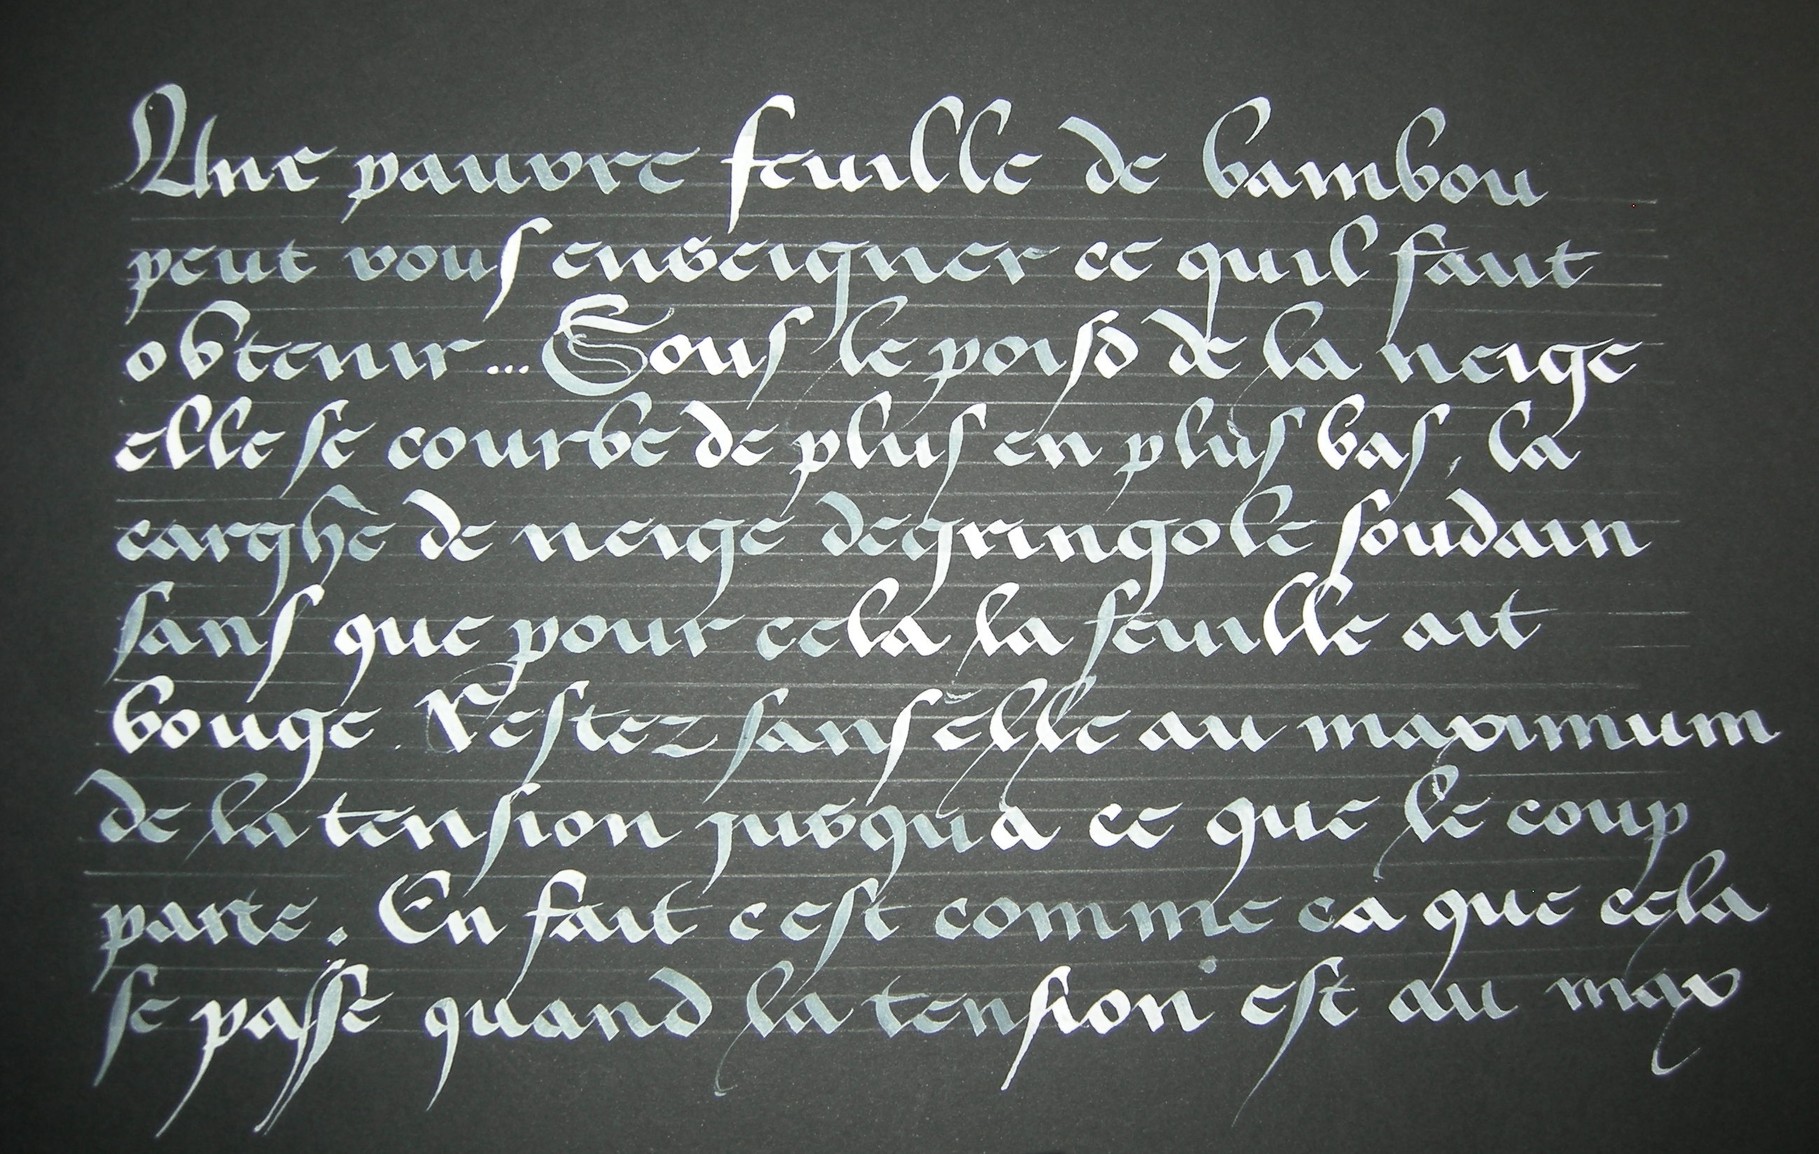 Une pauvre feuille de bambou
peut vous enseigner ce quil faut
obtenir... Sous le poisd de la neige
elle se courbe de plus en plus bas, la
carghe de neige degringole soudain
sans que pour cela la feuille ait
bouge. Restez sans elle au maximum
de la tension jusqua ce que le coup
parte. En fait c est comme ca que cela
se passe quand la tension est au max